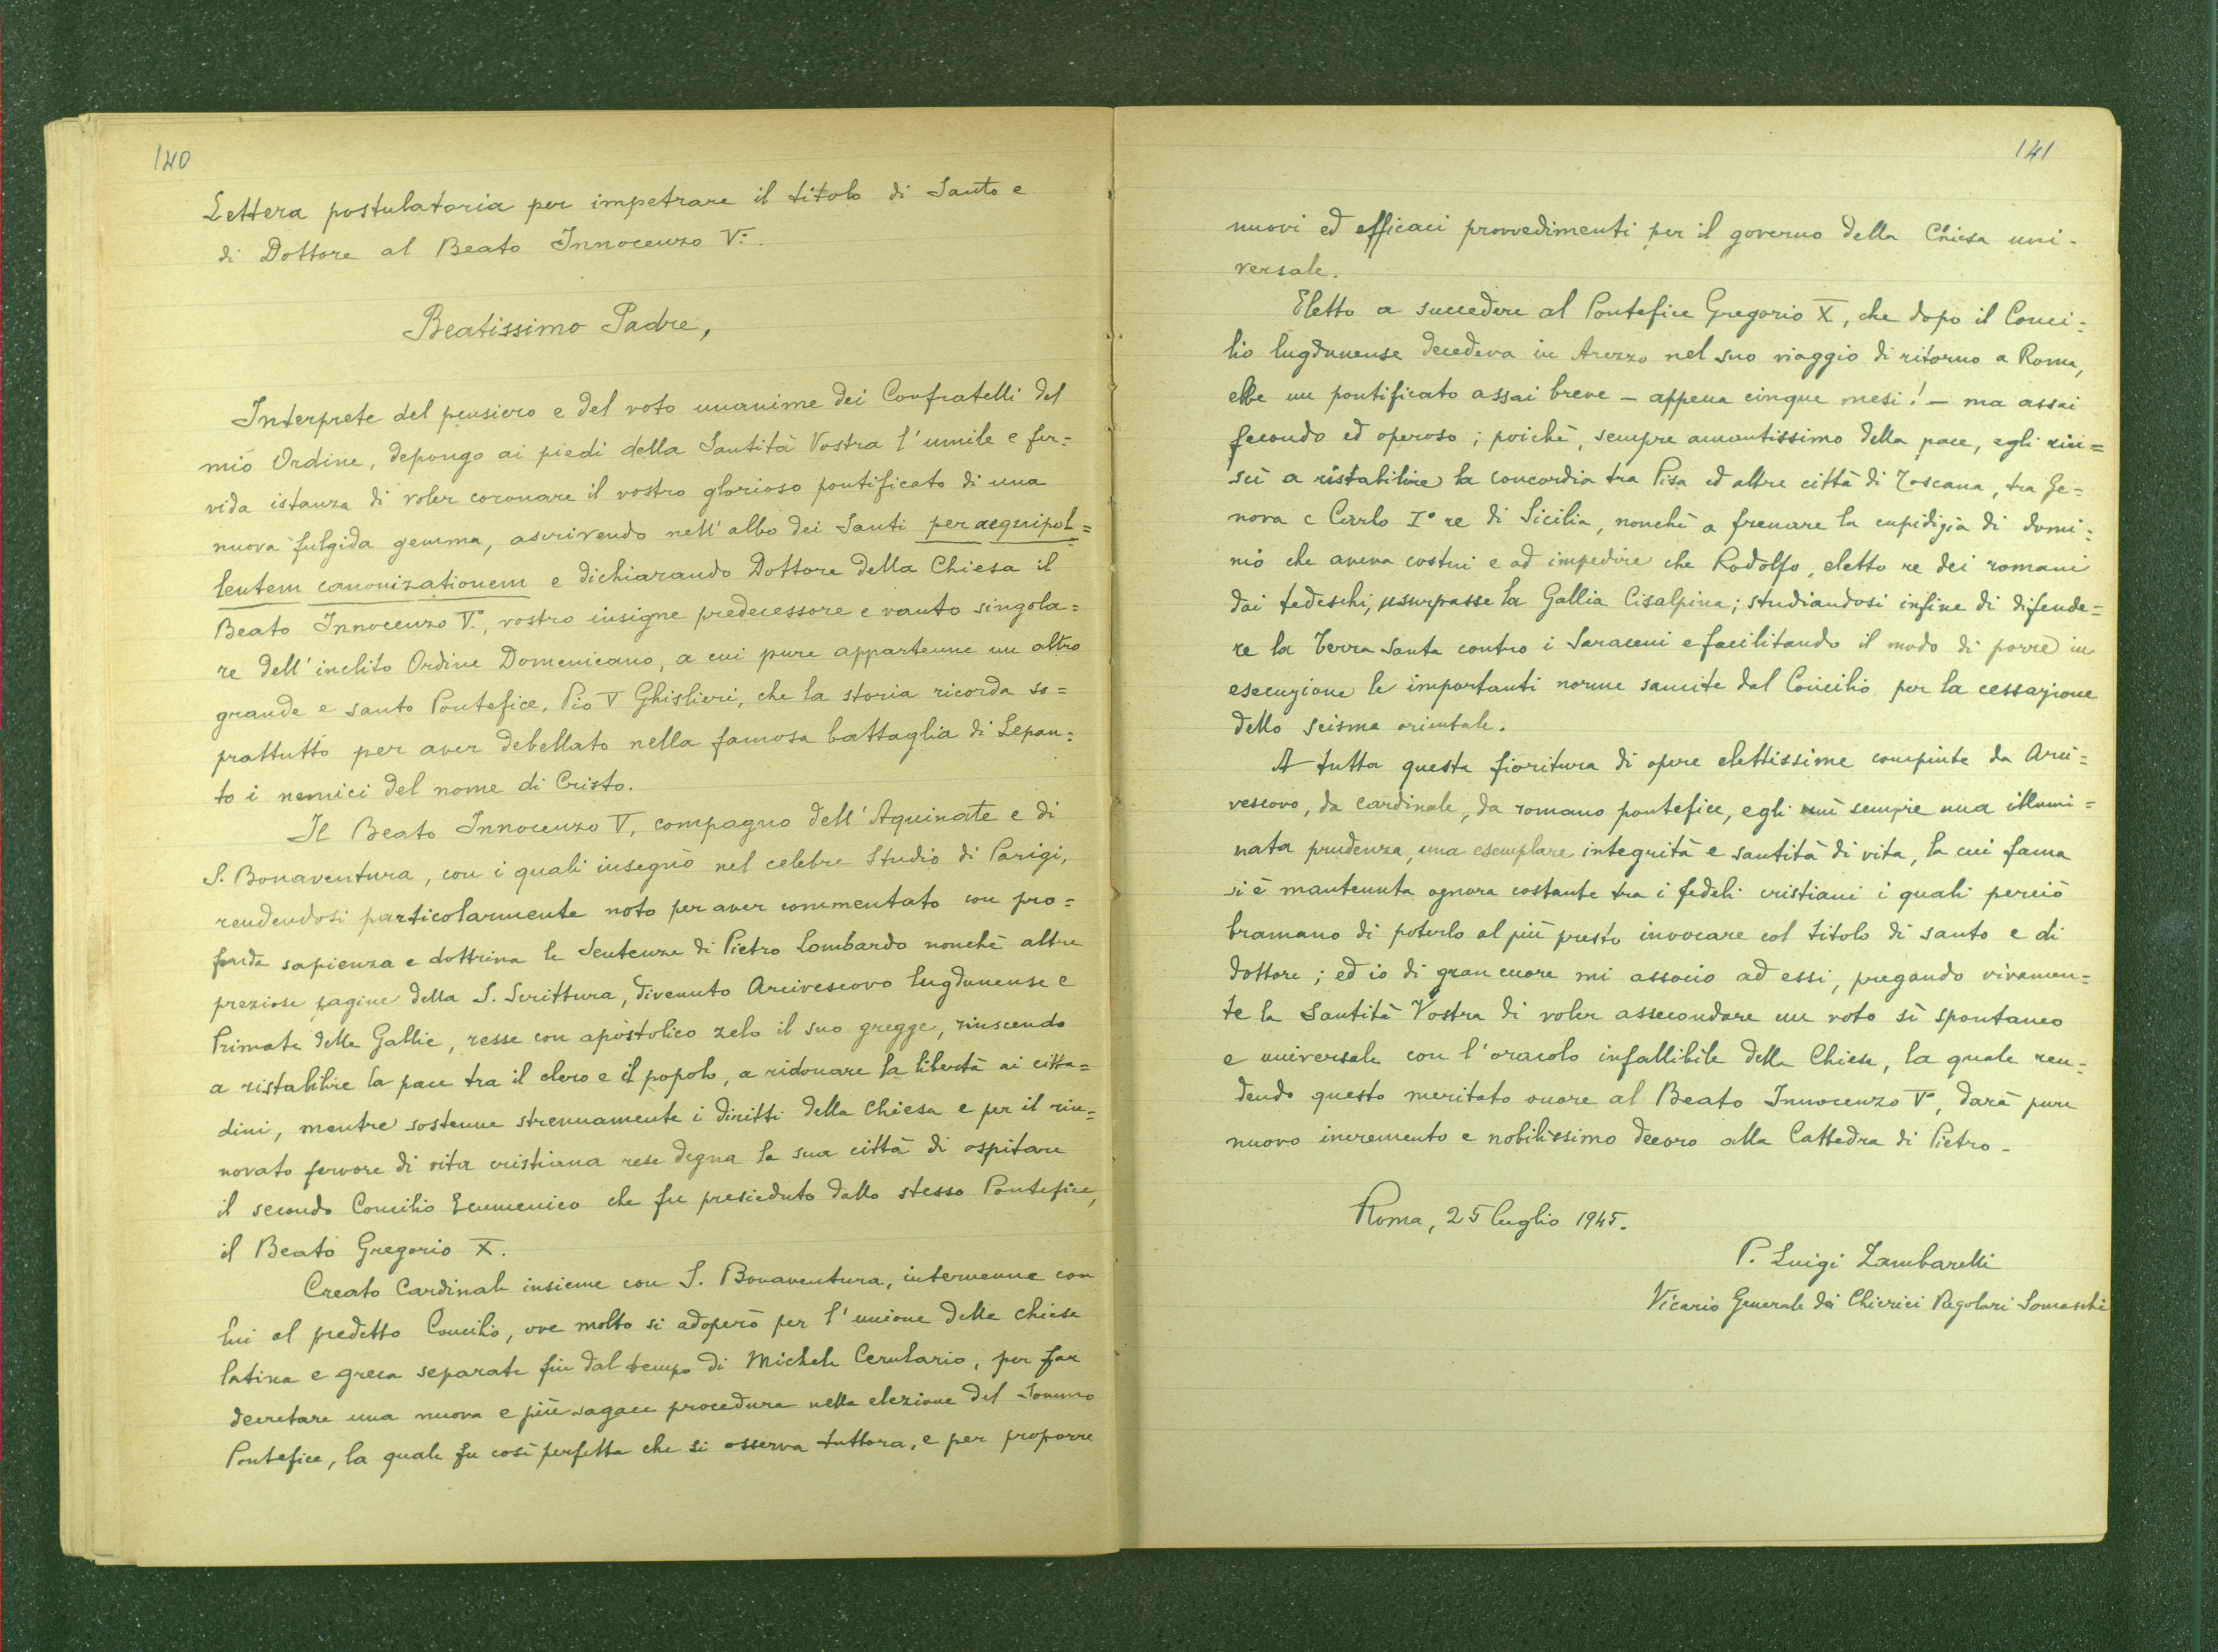 140
Lettera postulatoria per impetrare il titolo di Santo e
di Dottore al Beato Innocenzo V.º
Beatissimo Padre,
Interprete del pensiero e del voto unanime dei Confratelli del
mio Ordine, depongo ai piedi della Santità Vostra l'umile e fer=
vida istanza di voler coronare il vostro glorioso pontificato di una
nuova fulgida gemma, ascrivendo nell'albo dei Santi per aequipol=
lentem canonizationem e dichiarando Dottore della Chiesa il
Beato Innocenzo Vº, vostro insigne predecessore e vanto singola=
re dell'inclito Ordine Domenicano, a cui pure appartenne un altro
grande e santo Pontefice, Pio V Ghislieri, che la storia ricorda so=
prattutto per aver debellato nella famosa battaglia di Lepan=
to i nemici del nome di Cristo.
Il Beato Innocenzo V, compagno dell'Aquinate e di
S. Bonaventura, con i quali insegnò nel celebre Studio di Parigi,
rendendosi particolarmente noto per aver commentato con pro=
fonda sapienza e dottrina le Sentenze di Pietro Lombardo nonchè altre
preziose pagine della S. Scrittura, divenuto Arcivescovo lugdunense e
Primate delle Gallie, resse con apostolico zelo il suo gregge, riuscendo
a ristabilire la pace tra il clero e il popolo, a ridonare la libertà ai citta=
dini, mentre sostenne strenuamente i diritti della Chiesa e per il rin=
novato fervore di vita cristiana rese degna la sua città di ospitare
il secondo Concilio Ecumenico che fu presieduto dallo stesso Pontefice,
il Beato Gregorio X.
Creato Cardinale insieme con S. Bonaventura, intervenne con
lui al predetto Concilio, ove molto si adoperò per l'unione delle chiese
latina e greca separate fin dal tempo di Michele Cerulario, per far
decretare una nuova e più sagace procedura nella elezione del Sommo
Pontefice, la quale fu così perfetta che si osserva tuttora, e per proporre
141
nuovi ed efficaci provvedimenti per il governo della Chiesa uni-
versale.
Eletto a succedere al Pontefice Gregorio X, che dopo il Conci=
lio lugdunense decedeva in Arezzo nel suo viaggio di ritorno a Roma,
ebbe un pontificato assai breve - appena cinque mesi! - ma assai
fecondo ed operoso; poichè, sempre amantissimo della pace, egli riu=
scì a ristabilire la concordia tra Pisa ed altre città di Toscana, tra Ge=
nova e Carlo Iº re di Sicilia, nonchè a frenare la cupidigia di domi=
nio che aveva costui e ad impedire che Rodolfo, eletto re dei romani
dai tedeschi, usurpasse la Gallia Cisalpina; studiandosi infine di difende=
re la Terra Santa contro i Saraceni e facilitando il modo di porre in
esecuzione le importanti norme sancite dal Concilio per la cessazione
dello scisma orientale.
A tutta questa fioritura di opere elettissime compiute da Arci=
vescovo, da cardinale, da romano pontefice, egli unì sempre una illumi=
nata prudenza, una esemplare integrità e santità di vita, la cui fama
si è mantenuta ognora costante tra i fedeli cristiani i quali perciò
bramano di poterlo al più presto invocare col titolo di santo e di
dottore; ed io di gran cuore mi associo ad essi, pregando vivamen=
te la Santità Vostra di voler assecondare un voto sì spontaneo
e universale con l'oracolo infallibile della Chiesa, la quale ren=
dendo questo meritato onore al Beato Innocenzo Vº, darà pure
nuovo incremento e nobilissimo decoro alla Cattedra di Pietro -
Roma, 25 luglio 1945.
P. Luigi Zambarelli
Vicario Generale dei Chierici Regolari Somaschi